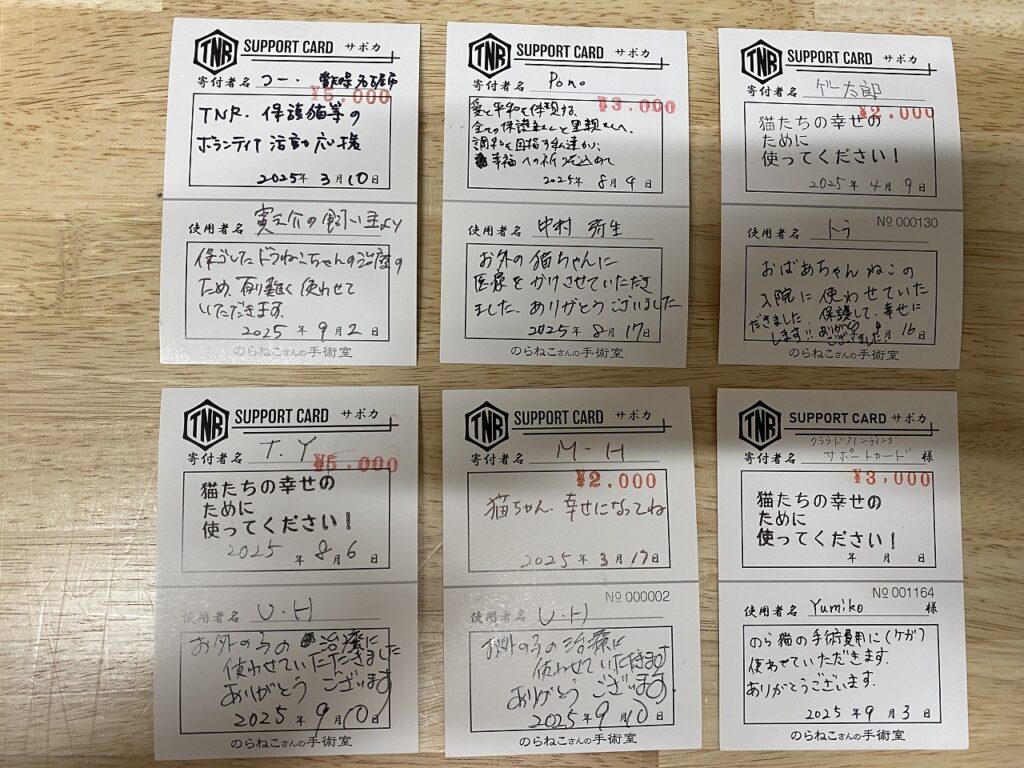 TNR SUPPORT CARD サポカ
寄付者名 コー.
¥5,000
TNR. 保護猫等の
ボランティア活動応援
2025年 3月 10日
使用者名 寅之介の飼い主より
保ごしたドラねこちゃんの治療の
ため、有り難く使わせて
いただきます.
2025年 9月 2日
のらねこさんの手術室
TNR SUPPORT CARD サポカ
寄付者名 Pono
¥3,000
愛と平和を体現する、
全ての保護主さんと里親さんへ、
調和を目指す私達から、
幸福への祈りを込めて
2025年 8月 4日
使用者名 中村 弥生
お外の猫ちゃんに
医療をかけさせていただき
ました. ありがとうございました
2025年 8月 17日
のらねこさんの手術室
TNR SUPPORT CARD サポカ
寄付者名 ゲー太郎
¥2,000
猫たちの幸せの
ために
使ってください!
2025年 4月 9日
No 000130
使用者名 トラ
おばあちゃんねこの
入院に使わせていた
だきました. 保護して、幸せに
します!! ありがとう
ございました 9月 16日
のらねこさんの手術室
TNR SUPPORT CARD サポカ
寄付者名 T.Y
¥5,000
猫たちの幸せの
ために
使ってください!
2025年 8月 6日
使用者名 U.H
お外の子の 治療に
使わせていただきました
ありがとう ございます
2025年 9月 10日
のらねこさんの手術室
TNR SUPPORT CARD サポカ
寄付者名 M-H
¥2,000
猫ちゃん. 幸せになってね
2025年 3月 17日
No 000002
使用者名 U.H
お外の子の治療に
使わせていただきます
ありがとう ございます.
2025年 9月 10日
のらねこさんの手術室
TNR SUPPORT CARD サポカ
クラウドファンディング
寄付者名 サポートカード 様
¥3,000
猫たちの幸せの
ために
使ってください!
年 月 日
No 001164
使用者名 Yumiko 様
のら猫の手術費用に(ケガ)
使わせていただきます.
ありがとうございます.
2025年 9月 3日
のらねこさんの手術室